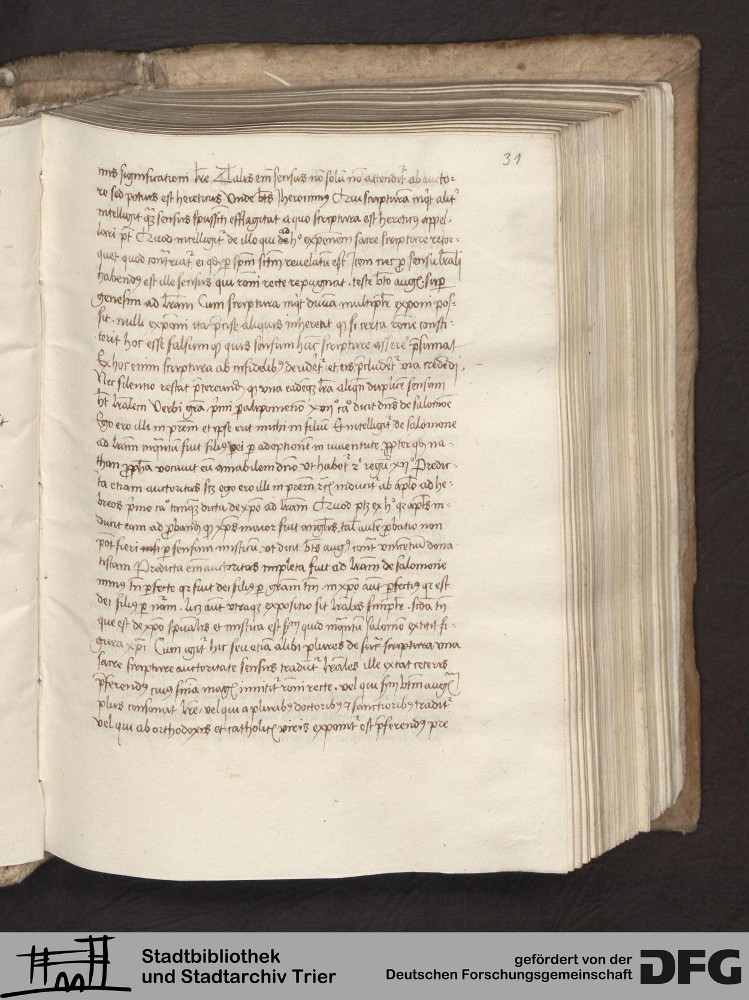 31
significationi lre Talis em sensus no solu no attendit ab aucto-
re sed potius est hereticus Unde bts Iheronimus Qui scripturam inqt alit
intelligit qz sensus spussti efflagitat a quo scriptura est hereticus appel-
lari pt Quod intelligit de illo qui ad expositionem sacre scripture
quod ei per spm revelatu est Item nec pro sensu lrali
habendus est ille sensus qui roni recte repugnat teste bto aug sup
genesim ad lram Cum scriptura inqt divina multiplr exponi pos-
sit nulli exponi ita precise aliquis inhereat q si certa rone consti-
terit hoc esse falsum q quis sensum huc scripture assere presumat
Ex hoc enim scriptura ab infidelibs deridet et eis precludet via credendi
Nec silentio restat pretereundu q una eademqz lra aliqn duplice sensum
ht lralem Verbi gra primi paralipomenon xvii ca dicit dns de salomone
Ego ero illi in prem et ipse erit michi in filiu Et intelligit de salomone
ad lram inquantu fuit filius dei per adoptionem in iuventute propter qd na-
than propha vocavit eu amabilem dno ut habet 2 regu xii Predic-
ta etiam auctoritas scz ego ero illi in prem inducit ab aplo ad he-
breos primo ca tanqz dicta de xpo ad lram Quod ptz ex h qr apls in-
ducit eam ad probandu q xps maior fuit anglis talis aute probatio non
pot fieri per sensum misticu ut dicit bts augs contra vincentiu dona-
tistam Predicta em auctoritas impleta fuit ad lram de salomone
minus tn perfecte qr fuit dei filius per gram tm in xpo aut perfectius qr est
dei filius per nam licz aut utraqz expositio sit lralis simplr scda tn
que est de xpo spualis et mistica est quid inquantu salomo extitit fi-
gura xpi Cum igit hic seu etia alibi plures de scriptura una
sacre scripture auctoritate sensus tradunt lrales ille extat ceteris
preferendus cuius snia magis innitit roni recte vel qui scdm btm aug
plus consonat lre vel qui a pluribs doctoribs et sanctioribs tradit
vel qui ab orthodoxis et catholicis viris exponit est preferendus pre
Stadtbibliothek
und Stadtarchiv Trier
gefördert von der
Deutschen Forschungsgemeinschaft
DFG